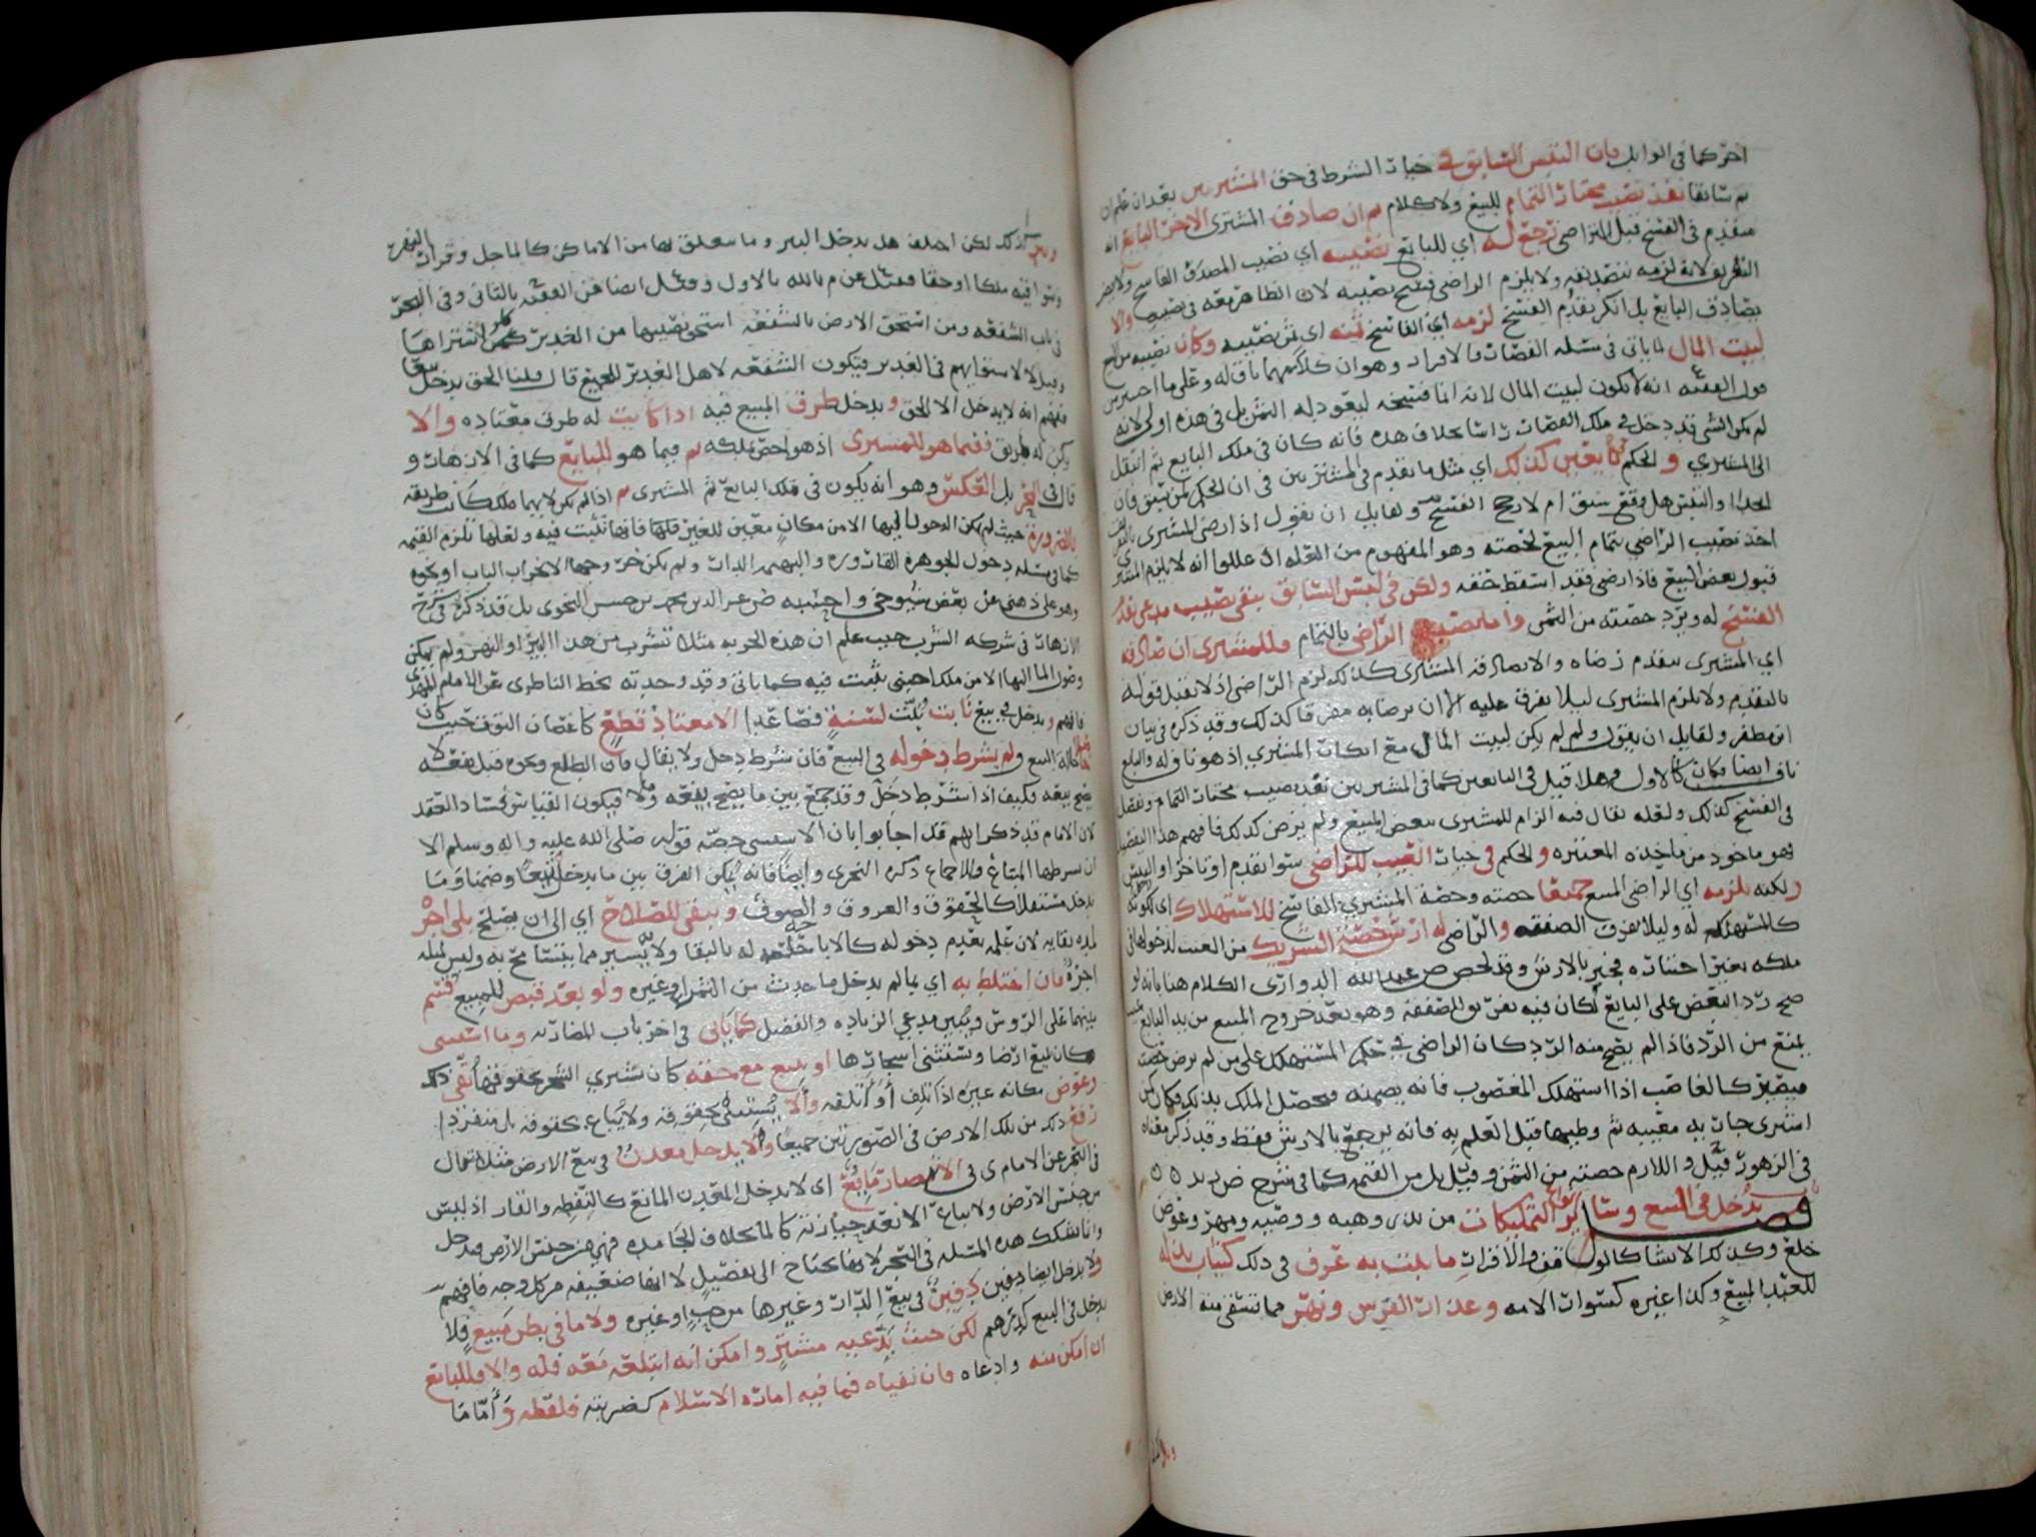 اخر كما في الوابل فان التبس السابق في خيار الشرط في حق المشتريين بعد ان علم ان
ثم سابقا نفذ نصيب مختار التمام للبيع ولا كلام ثم ان صادق المشتري الاخر البايع انه
متقدم في الفسخ قبل التراضي رجع له اي للبايع نصيبه اي نصيب المصدق الفاسخ ولا يضر
التفريق لانه لزمه بتصديقه ولا يلزم الراضي فسخ نصيبه لان الظاهر معه في نصيبه والا
يصادق البايع بل انكر تقدم الفسخ لزمه اي الفاسخ ثمنه اي ثمن نصيبه وكان نصيبه من المبيع
لبيت المال لما ياتي في مسئله القصار بالاقرار وهو ان كلامهما باق له وعلى ما اختير من
قول الفقيه انه لا يكون لبيت المال لانه انما فسخه ليعود له الثمن بل في هذه اولى لانه
لم يكن الشي قد دخل في ملك القصار راسا بخلاف هذه فانه كان في ملك البايع ثم انتقل
الى المشتري والحكم في بايعين كذلك اي مثل ما تقدم في المشتريين في ان الحكم لمن سبق فان
اتحدا والتبس هل وقع سبق ام لا رجح الفسخ ولقايل ان يقول اذا رضي المشتري
اخذ نصيب الراضي بتمام البيع بحصته وهو المفهوم من العله اذ عللوا انه لا يلزم المشتري
قبول بعض المبيع فاذا رضي فقد اسقط حقه ولكن في لبس السابق يبقى نصيب مدعي تقدم
الفسخ له ويرد حصته من الثمن واما نصيب الراضي بالتمام فللمشتري ان صادقه
اي المشتري بتقدم رضاه والا يصادقه المشتري كذلك لزم الراضي اذ لا يقبل قوله
بالتقدم ولا يلزم المشتري ليلا يفرق عليه الا ان يرضا به مفرقا كذلك وقد ذكره في بيان
ابن مظفر ولقايل ان يقول ولم لم يكن لبيت المال مع انكار المشتري اذ هو ناف له والبايع
ناف ايضا فكان كالاول فهلا قيل في البايعين كما في المشتريين نفذ نصيب مختار التمام ويفصل
في الفسخ كذلك ولعله يقال فيه الزام للمشتري بعض المبيع ولم يرض كذلك فافهم هذا التفصيل
فهو ماخوذ من ماخذه المعتبره والحكم في خيار العيب للراضي سوا تقدم او تاخر او التبس
ولكنه يلزمه اي الراضي المبيع جميعا حصته وحصة المشتري الفاسخ للاستهلاك اي لكونه
كالمستهلك له وليلا يفرق الصفقه والراضي له ارش حصة الشريك من العيب لدخولها في
ملكه بغير اختياره فيجبر بالارش وقد لخص ض عبد الله الدواري الكلام هنا بانه لو
صح رد البعض على البايع لكان فيه تفريق الصفقه وهو بعد خروج المبيع من يد البايع
يمنع من الرد فاذا لم يصح منه الرد كان الراضي في حكم المستهلك على من لم يرض حصته
فيصير كالغاصب اذا استهلك المغصوب فانه يضمنه ويحصل الملك بذلك وكان كمن
اشترى جاريه معيبه ثم وطيها قبل العلم به فانه يرجع بالارش فقط وقد ذكر معناه
في الزهور قيل واللازم حصته من الثمن وقيل بل من القيمه كما في شرح ض زيد
فصل يدخل في المبيع وساير انواع التمليكات من نذر وهبه ووصيه ومهر وعوض
خلع وكذلك الانشا كالوقف والاقرار ما يثبت به عرف في ذلك كثياب بذله
للعبد المبيع وكذا غيره كسوار الامه وعذار الفرس ونهر مما تسقى منه الارض
وبير كذلك لكن اختلف هل يدخل البير وما يتعلق بها من الاماكن كالماجل وقرار النهر
وسواقيه ملكا او حقا فقيل عن م بالله بالاول وقيل ايضا عن الفقيه بالثاني وفي البحر
في باب الشفعه ومن استحق الارض بالشفعه استحق نصيبها من الغدير كمن اشتراها
وقيل لا لاستقايهم في الغدير فيكون الشفعه لاهل الغدير للجميع قال قلنا الحق يدخل تبعا
فيفهم انه لا يدخل الا الحق ويدخل طرق المبيع فيه اذا كانت له طرق معتاده والا
يكن له طريق ففيما هو للمشتري اذ هو اخص بملكه ثم فيما هو للبايع كما في الازهار و
قال في البحر بل العكس وهو انه يكون في ملك البايع ثم المشتري ثم اذا لم يكن لايهما ملك كانت طريقه
بالضروره حيث لم يمكن الدخول اليها الا من مكان معين للغير فلها فانها تثبت فيه ولعلها تلزم القيمه
كما في مسئله دخول الجوهره القاروره والبهيمه الدار ولم يكن خروجها الا بخراب الباب او نحوه
وهو على ذهني عن بعض شيوخي واحسبه ض عز الدين محمد بن حسن النحوي بل قد ذكره في شرح
الازهار في شركه الشرب حيث علم ان هذه الجربه مثلا تشرب من هذا البير او النهر ولم يمكن
وصول الما اليها الا من ملك اجنبي ثبتت فيه كما ياتي وقد وجدته بخط الناظري عن الامام المهدي
فافهم ويدخل في بيع نابت ثبت لسنة فصاعدا الا معتاد قطع كاغصان التوت حيث كان
حالة البيع ولم يشرط دخوله في البيع فان شرط دخل ولا يقال بان الطلع ونحوه قبل نفعه لا
يصح بيعه فكيف اذا اشترط دخل وقد جمع بين ما يصح بيعه وما لا فيكون القياس فساد العقد
لان الامام قد ذكر انهم قد اجابوا بان الاستثنى خصه قوله صلى الله عليه واله وسلم الا
ان يشرطها المبتاع وللاجماع ذكره النجري وايضا فانه يمكن الفرق بين ما يدخل تبعا وضمنا وما
يدخل مستقلا كالحقوق والعروق والصوف ويبقى للصلاح اي الى ان يصلح بلا اجره
لمده بقايه لان علمه بعدم دخوله كالاباحه له بالبقا ولا يسير مما يتسامح به وليس لمثله
اجره فان اختلط به اي بما لم يدخل ما حدث من الثمر او غيره ولو بعد قبض المبيع قسم
بينهما على الروس ويبين مدعي الزياده والفضل كما ياتي في اخر باب المضاربه وما استثنى
كان يبيع ارضا ويستثني اشجارها او بيع مع حقه كان يشتري الشجر بحقوقها بقي ذلك
وعوض مكانه غيره اذا تلف او اتلفه والا يستثنى بحقوقه ولا يباع بحقوقه بل منفردا
رفع ذلك من تلك الارض في الصورتين جميعا ولا يدخل معدن في بيع الارض مثله قال
في البحر عن الامام ي في الانتصار مايع اي لا يدخل المعدن المايع كالنفط والقار اذ ليس
من جنس الارض ولا يباع الا بعد حيازته كالما بخلاف الجامده فهي من جنس الارض فتدخل
وانا اشكلت هذه المسئله في البحر لانها تحتاج الى تفصيل لا انها ضعيفه من كل وجه فافهم
ولا يدخل ايضا دفين دفن في بيع الدار وغيرها من حب او غيره ولا ما في بطن مبيع فلا
يدخل في البيع كدرهم لكن حيث يدعيه مشتر وامكن انه ابتلعه معه فله والا فللبايع
ان امكن منه وادعاه فان نفياه فما فيه اماره الاسلام كضربته فلقطه واما ما